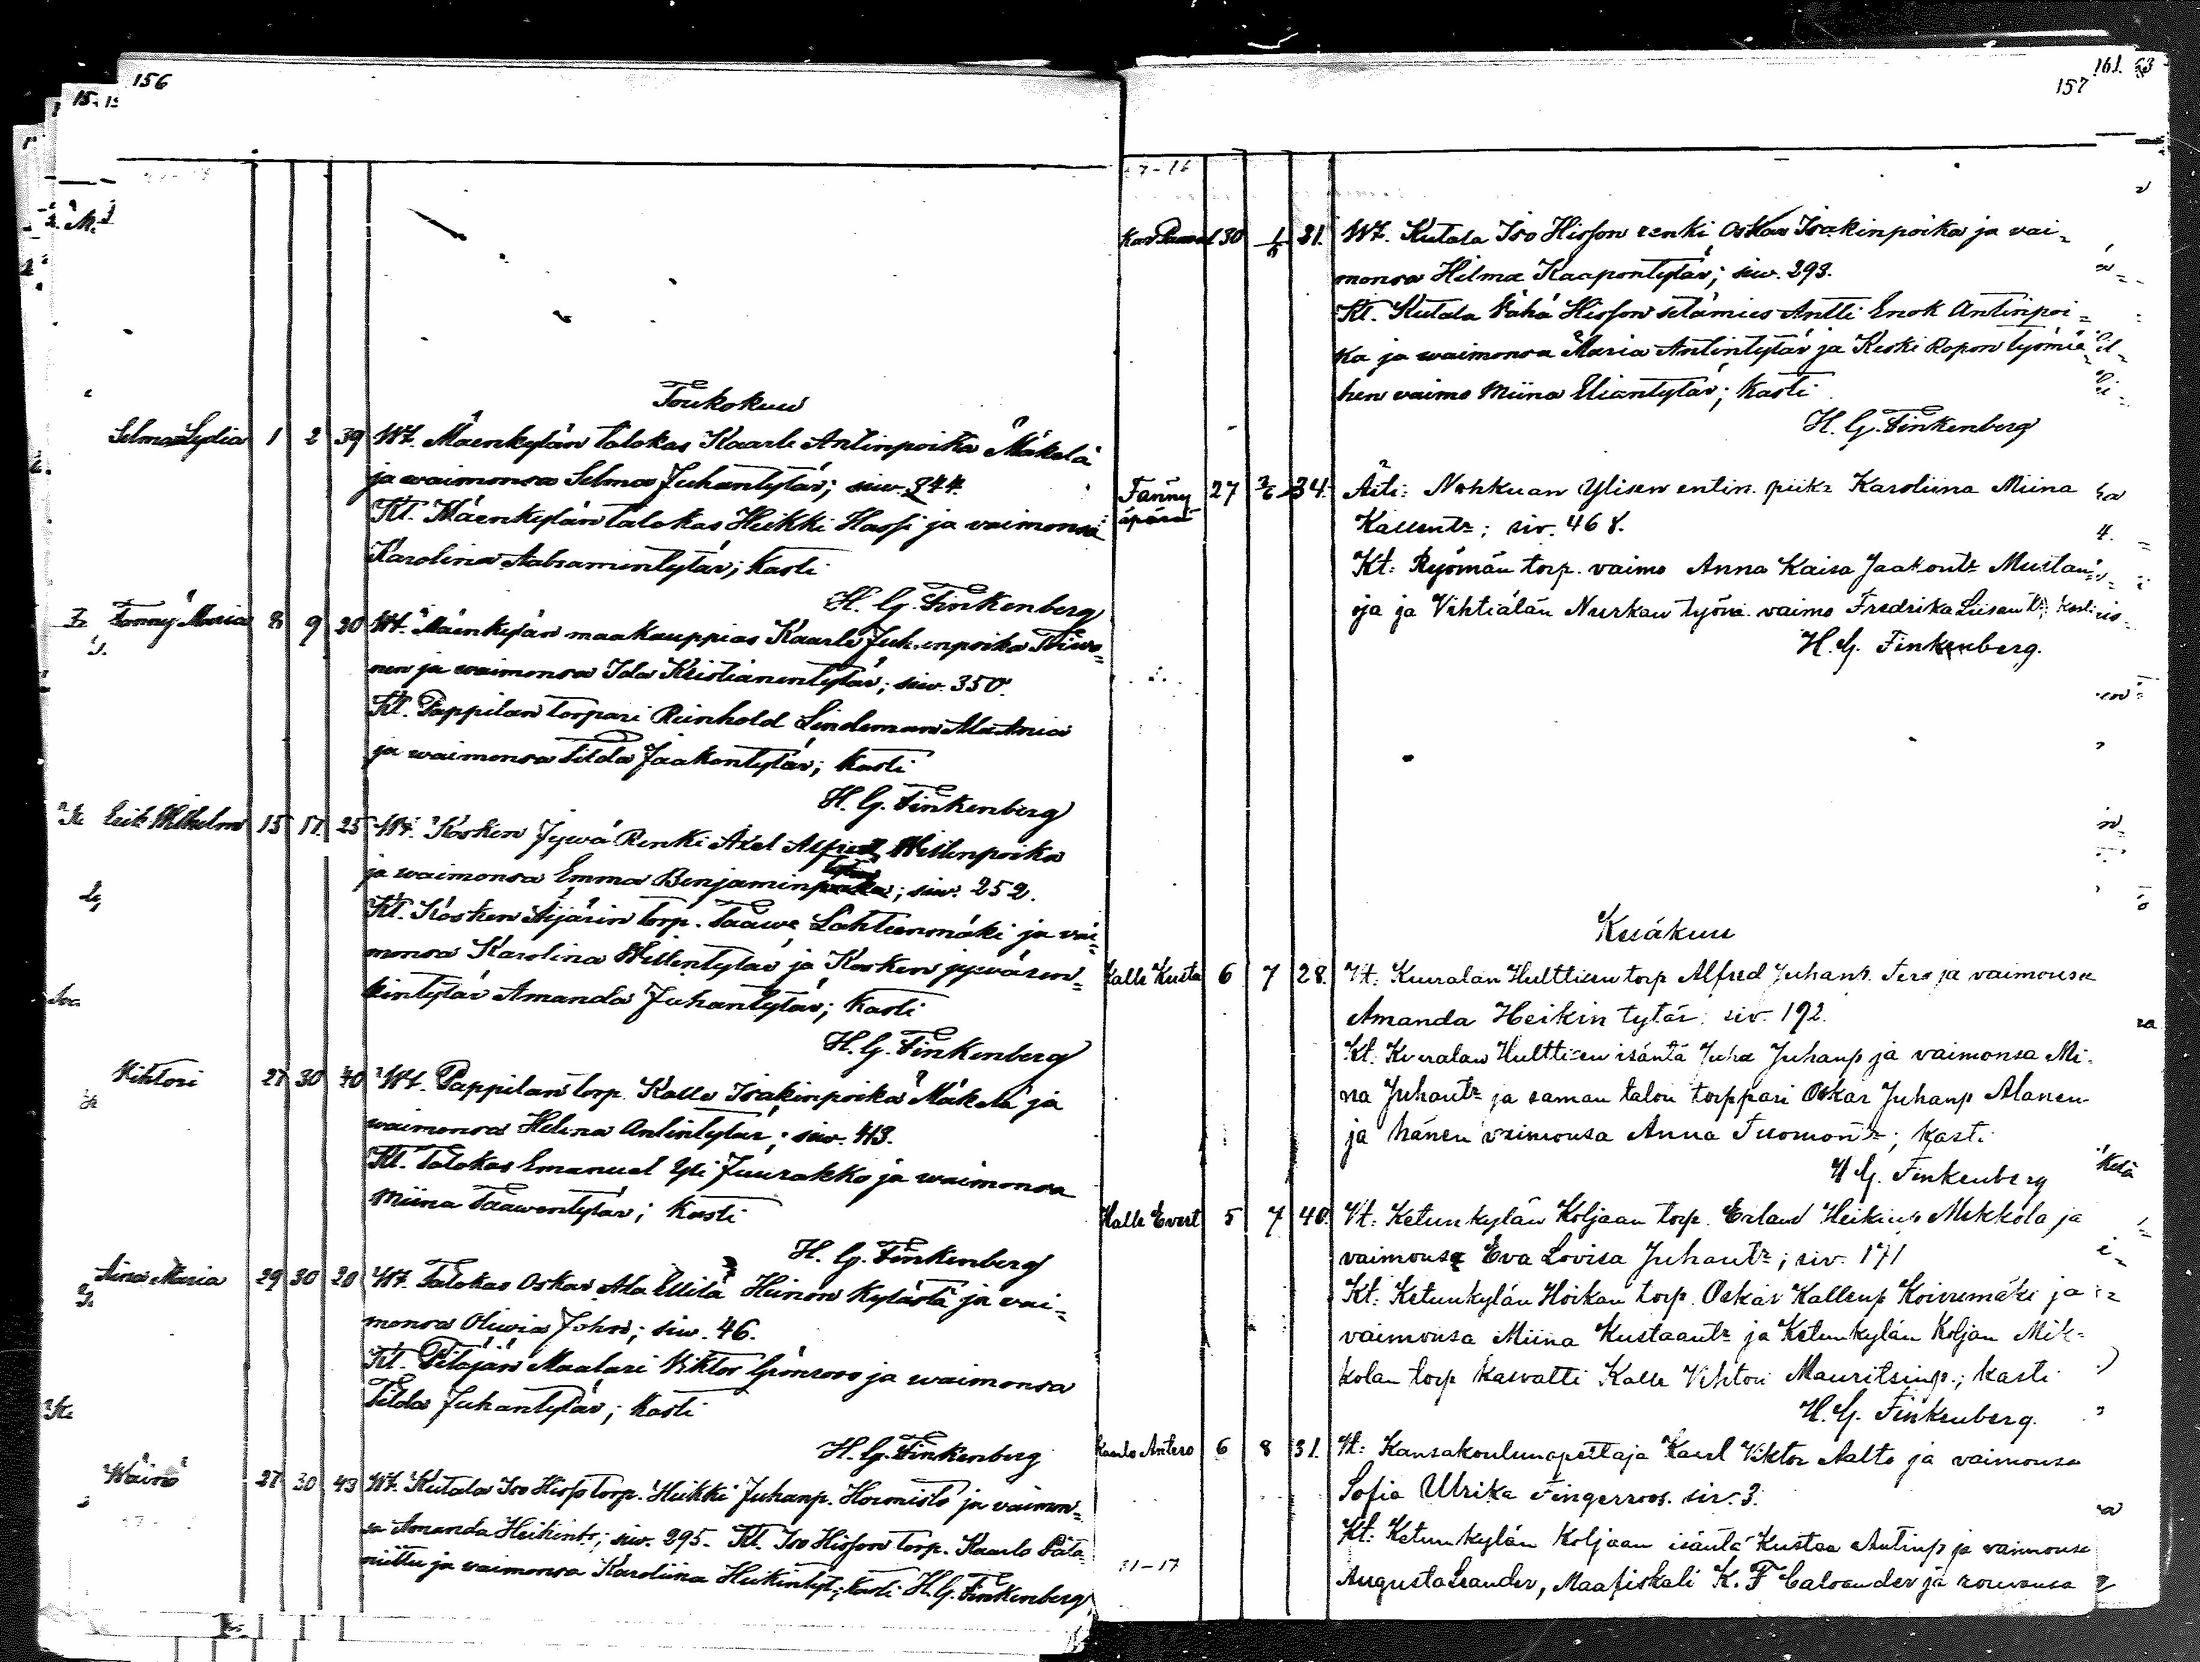 156
Toukokuu
Selma Lydia 1 2 39 Wt. Mäenkylän talokas Kaarle Antinpoika Mäkelä
ja waimonsa Selma Juhantytär; siw. 344.
Kt. Mäenkylän talokas Heikki Hassi ja waimonsa
Karolina Aabramintytär; kasti
H. G. Finkenberg
Fanny Maria 8 9 30 Wt. Mäenkylän maakauppias Kaarle Juhanpoika
nen ja waimonsa Ida Kristianintytär; siw. 350.
Kt. Pappilan torpari Reinhold Lindeman
ja waimonsa Tilda Jaakontytär; kasti
H. G. Finkenberg
Erik Wilhelm 15 17 25 Wt. Kosken Jywä Renki Axel Alfred Willenpoika
ja waimonsa Emma Benjamin tytär; siw. 252.
Kt. Kosken Äijärin torp. Taawe Lahtienmäki ja wai=
monsa Karolina Willentytär ja Kosken jywären=
kintytär Amanda Juhantytär; kasti
H. G. Finkenberg
Wihtori 27 30 40 Wt. Pappilan torp. Kalle Isakinpoika Mäkelä ja
waimonsa Helena Antintytär; siw. 413.
Kt. Talokas Emanuel Yli Juurakko ja waimonsa
Miina Taawentytär; kasti
H. G. Finkenberg
Aina Maria 29 30 20 Wt. Talokas Oskar Ala Ellilä Heinon kylästä ja wai=
monsa Oliwia John; siw. 46.
Kt. Pitäjän Maalari Viktor Grönroos ja waimonsa
Tilda Juhantytär; kasti
H. G. Finkenberg
Wäinö 27 30 43 Wt. Kutala Iso Hisso torp. Heikki Juhanp. Hormisto ja vaimon=
sa Amanda Heikint:r; siw. 295. Kt. Iso Hisson torp. Kaarlo Pata=
niittu ja vaimonsa Karoliina Heikintyt; kasti H. G. Finkenberg
157
30 1/6 31. Wt. Kutala Iso Hisson renki Oskar Isakinpoika ja vai=
monsa Hilma Kaapontytär; siw. 293.
Kt. Kutala Vähä Hisson setämies Antti Enok Antinpoi=
ka ja waimonsa Maria Antintytär ja Keski Ropon työmie=
hen vaimo Miina Eliantytär; kasti
H. G. Finkenberg
Fanny 27 34. Äiti: Nohkuan Ylisen entin. piika Karoliina Miina
äpärä Kallentr; siv. 468.
Kt: Ryömän torp. vaimo Anna Kaisa Jaakontr Mustan=
oja ja Vihtiälän Nurkan työm. vaimo Fredrika Liisantr; kasti
H. G. Finkenberg.
Kesäkuu
Kalle Kusta 6 7 28. Vt. Kuuralan Hulttisen torp Alfred Juhanp. Tero ja vaimonsa
Amanda Heikin tytär. siv. 192.
Kt. Kuuralan Hulttisen isäntä Juha Juhanp ja vaimonsa Mi=
na Juhantr ja saman talon torppari Oskar Juhanp Alanen
ja hänen vaimonsa Anna Tuomontr; kasti
H G. Finkenberg
Kalle Evert 5 7 40. Vt: Ketunkylän Koljaan torp. Erland Heikinp Mikkola ja
vaimonsa Eva Lovisa Juhantr; siv. 171
Kt: Ketunkylän Hoikan torp. Oskar Kallenp Koivumäki ja
vaimonsa Miina Kustaantr ja Ketunkylän Koljan Mik=
kolan torp kasvatti Kalle Vihtori Mauritsinp.; kasti
H. G. Finkenberg.
Kaarlo Antero 6 8 31. Vt: Kansakoulunopettaja Kaarl Viktor Aalto ja vaimonsa
Sofia Ulrika Fingerroos. siv. 3.
Kt: Ketunkylän Koljaan isäntä Kustaa Antinp ja vaimonsa
Augusta Leander, Maafiskali K. F Caloander ja rouvansa